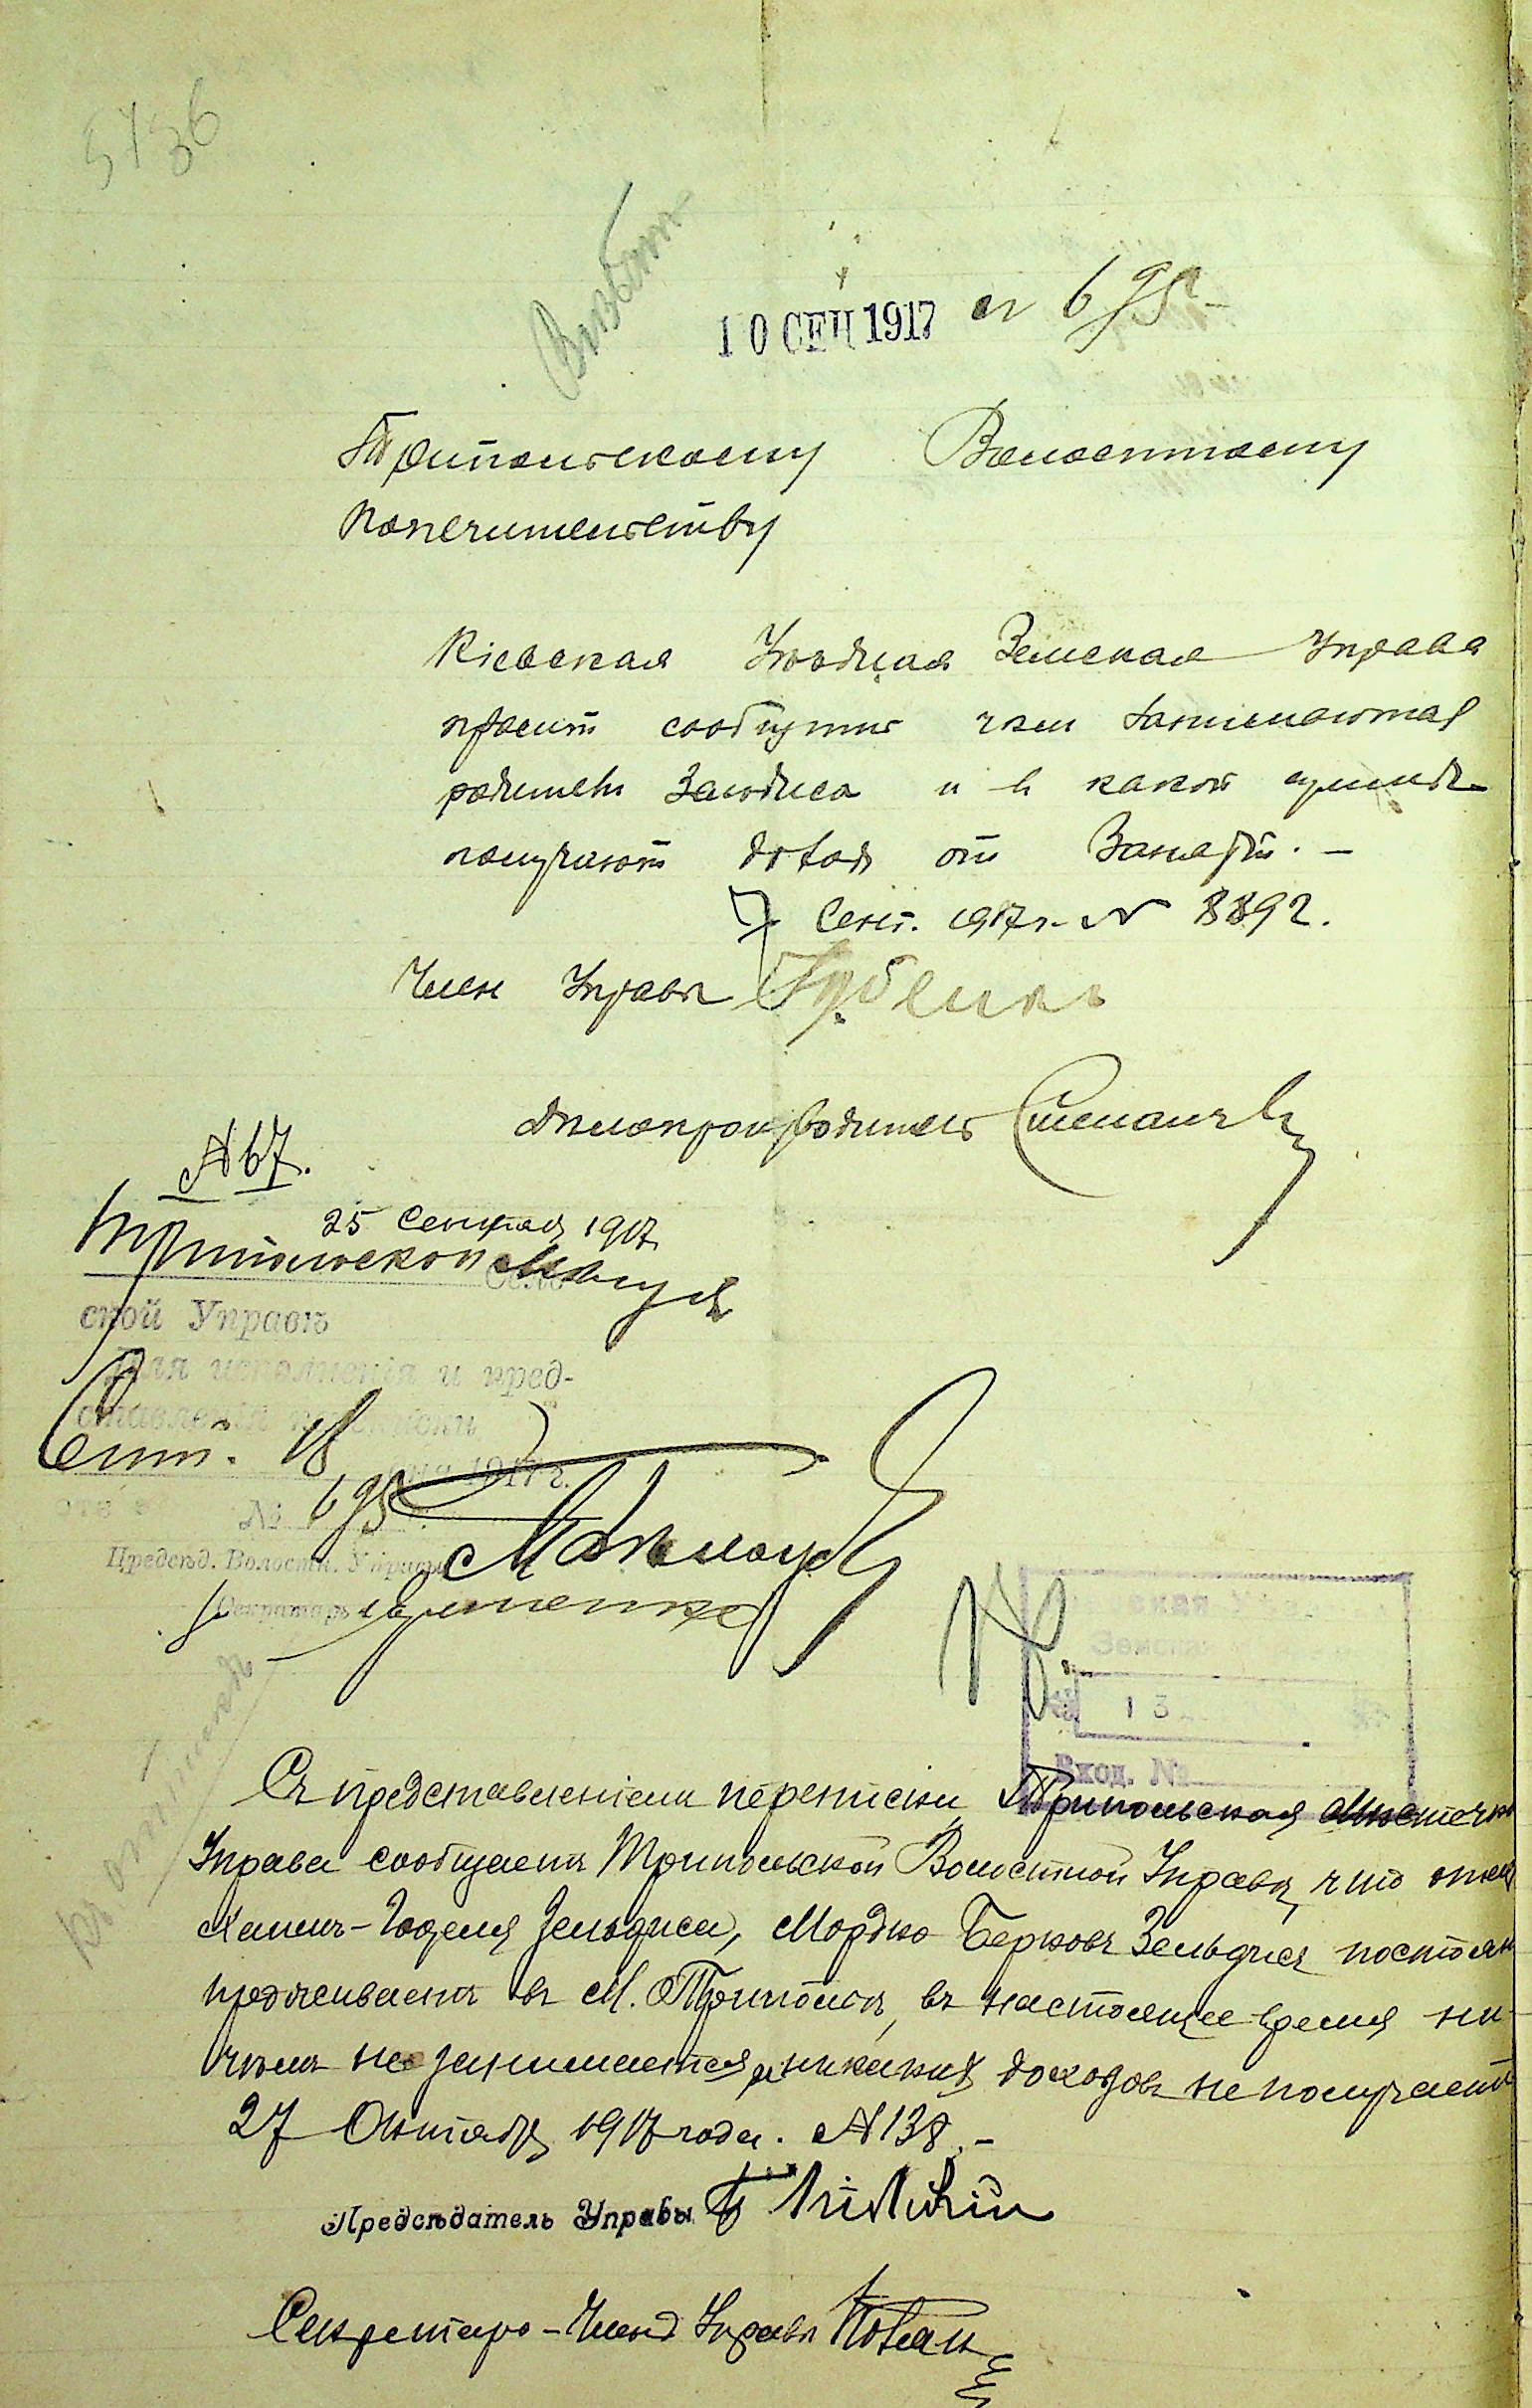 5736
10 СЕН 1917 № 695
Трипольскому Волостному
попечительству
Кіевская Уѣздная Земская Управа
просит сообщить чѣм занимаются
родители Зельдиса и в какой суммѣ
получают доход от занятій. —
7 Сент. 1917 г. № 8892.
Член Управы
Дѣлопроизводитель
№ 67.
25 Сентября 1917
Трипольской
ской Управѣ
Для исполненія и пред-
ставленія переписки
Сент. 18 дня 1917 г.
№ 695
Предсѣд. Волостн. Управы
Секретарь
Земская
13
Вход. №
Съ представленіемъ переписки Трипольская Мѣстечк
Управа сообщаетъ Трипольской Волостной Управѣ, что отец
Зельдиса, Мордко Берковъ Зельдисъ постоян
проживаетъ въ М. Трипольи, въ настоящее время ни-
чѣмъ не занимается и никакихъ доходовъ не получаетъ
27 Октября 1917 года. № 138. —
Предсѣдатель Управы
Секретарь-Членъ Управы